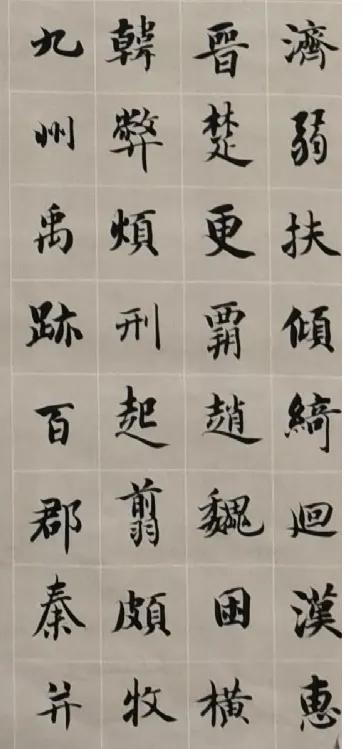 濟弱扶傾綺迴漢惠
晉楚更霸趙魏困橫
韓弊煩刑起翦頗牧
九州禹跡百郡秦并